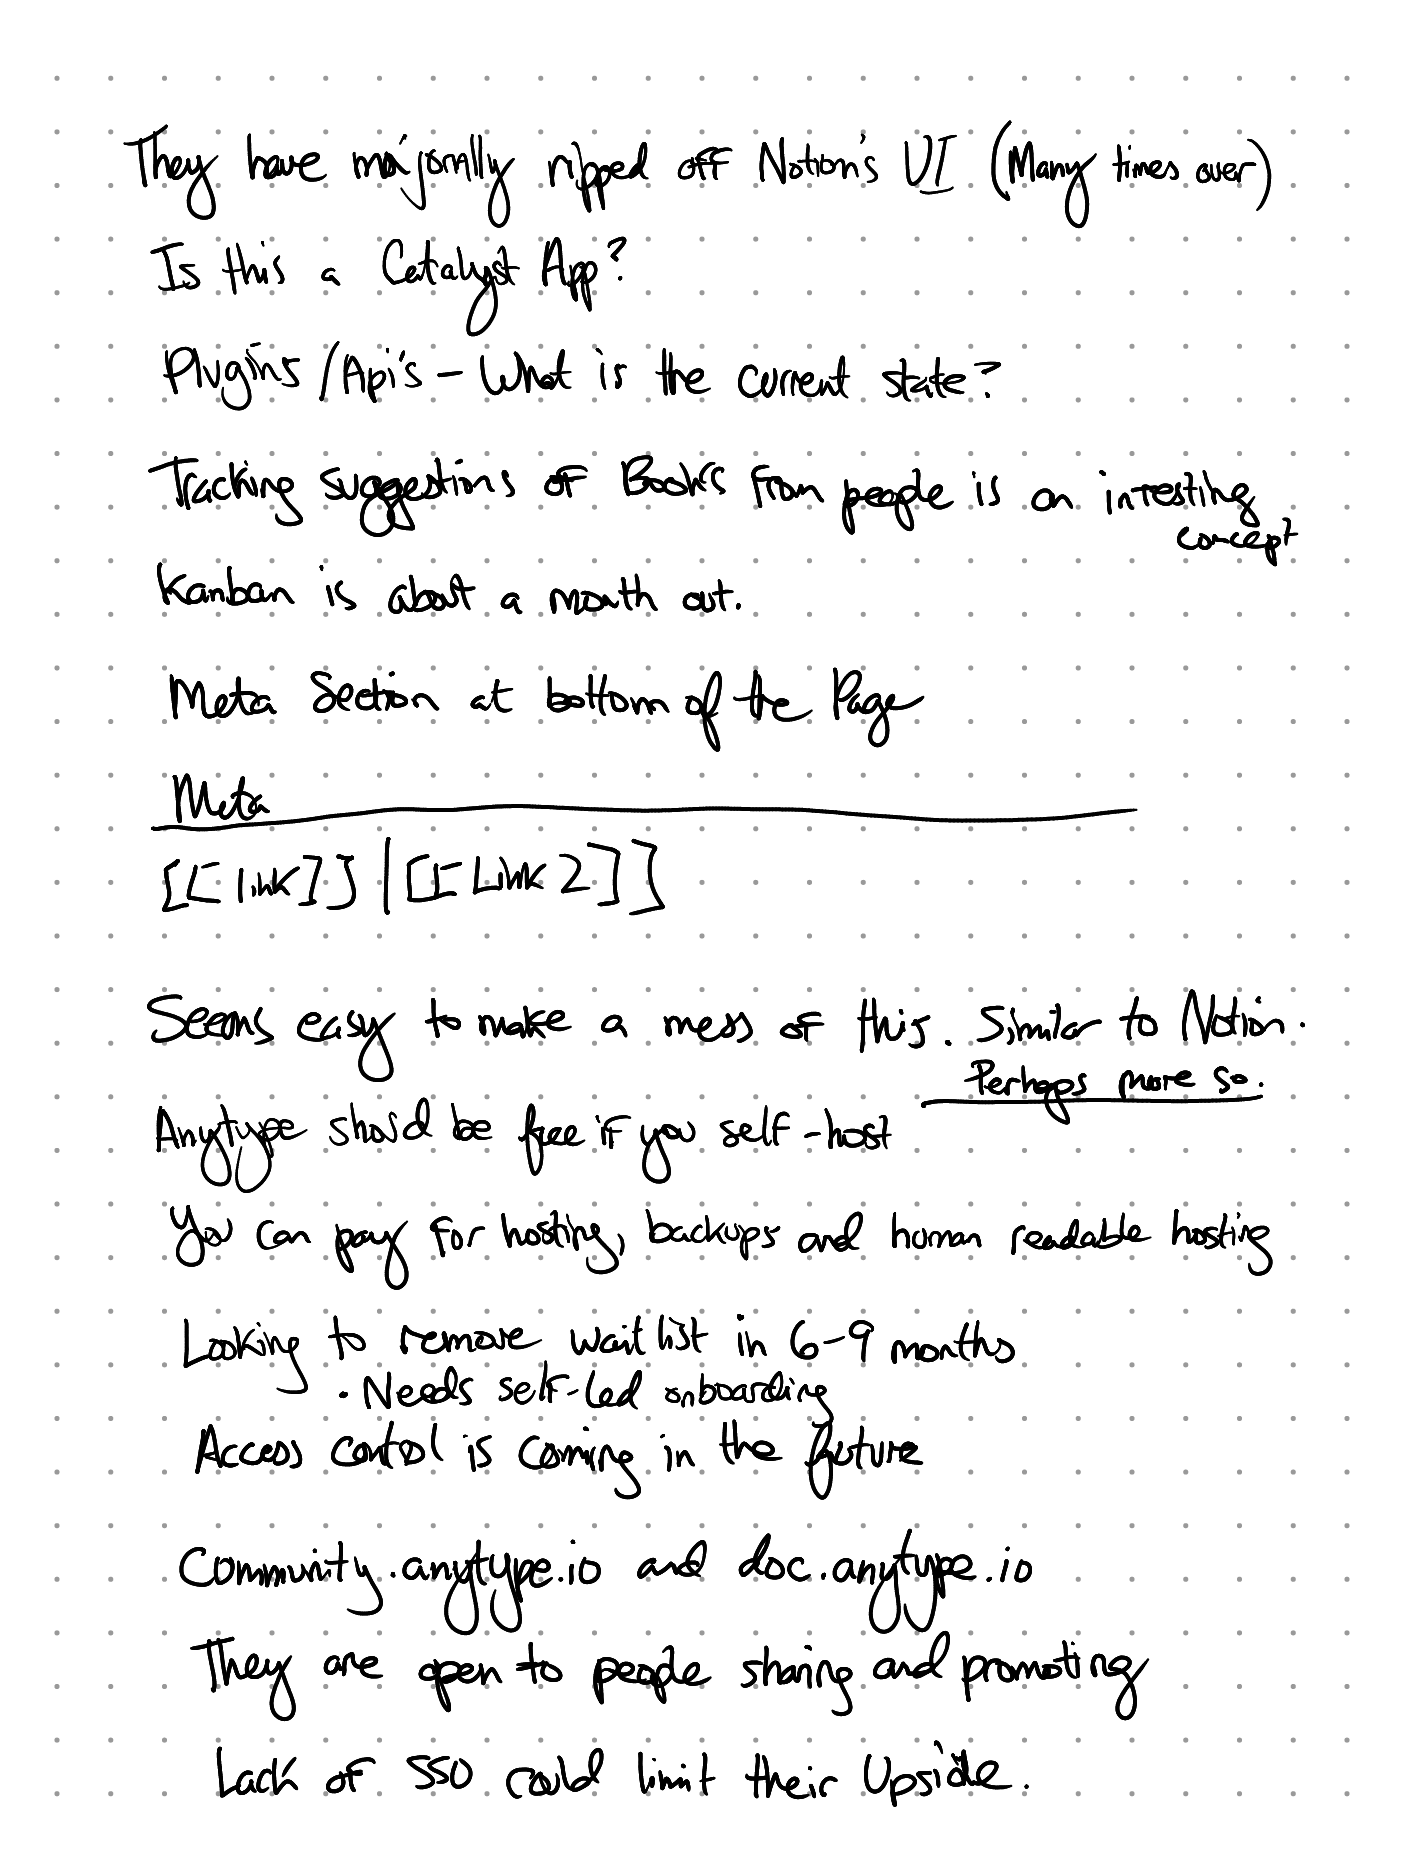 They have majorally ripped off Notion's UI (Many times over)
Is this a Catalyst App?
Plugins /Api's - What is the current state?
Tracking suggestions of Books from people is an intresting
concept
Kanban is about a month out.
Meta Section at bottom of the Page
Meta
[[link]] | [[Link 2]]
Seems easy to make a mess of this. Similar to Notion.
Perhaps more so.
Anytype should be free if you self-host
You can pay for hosting, backups and human readable hosting
Looking to remove waitlist in 6-9 months
· Needs self-led onboarding
Access control is coming in the future
Community.anytype.io and doc.anytype.io
They are open to people sharing and promoting
Lack of SSO could limit their Upside.